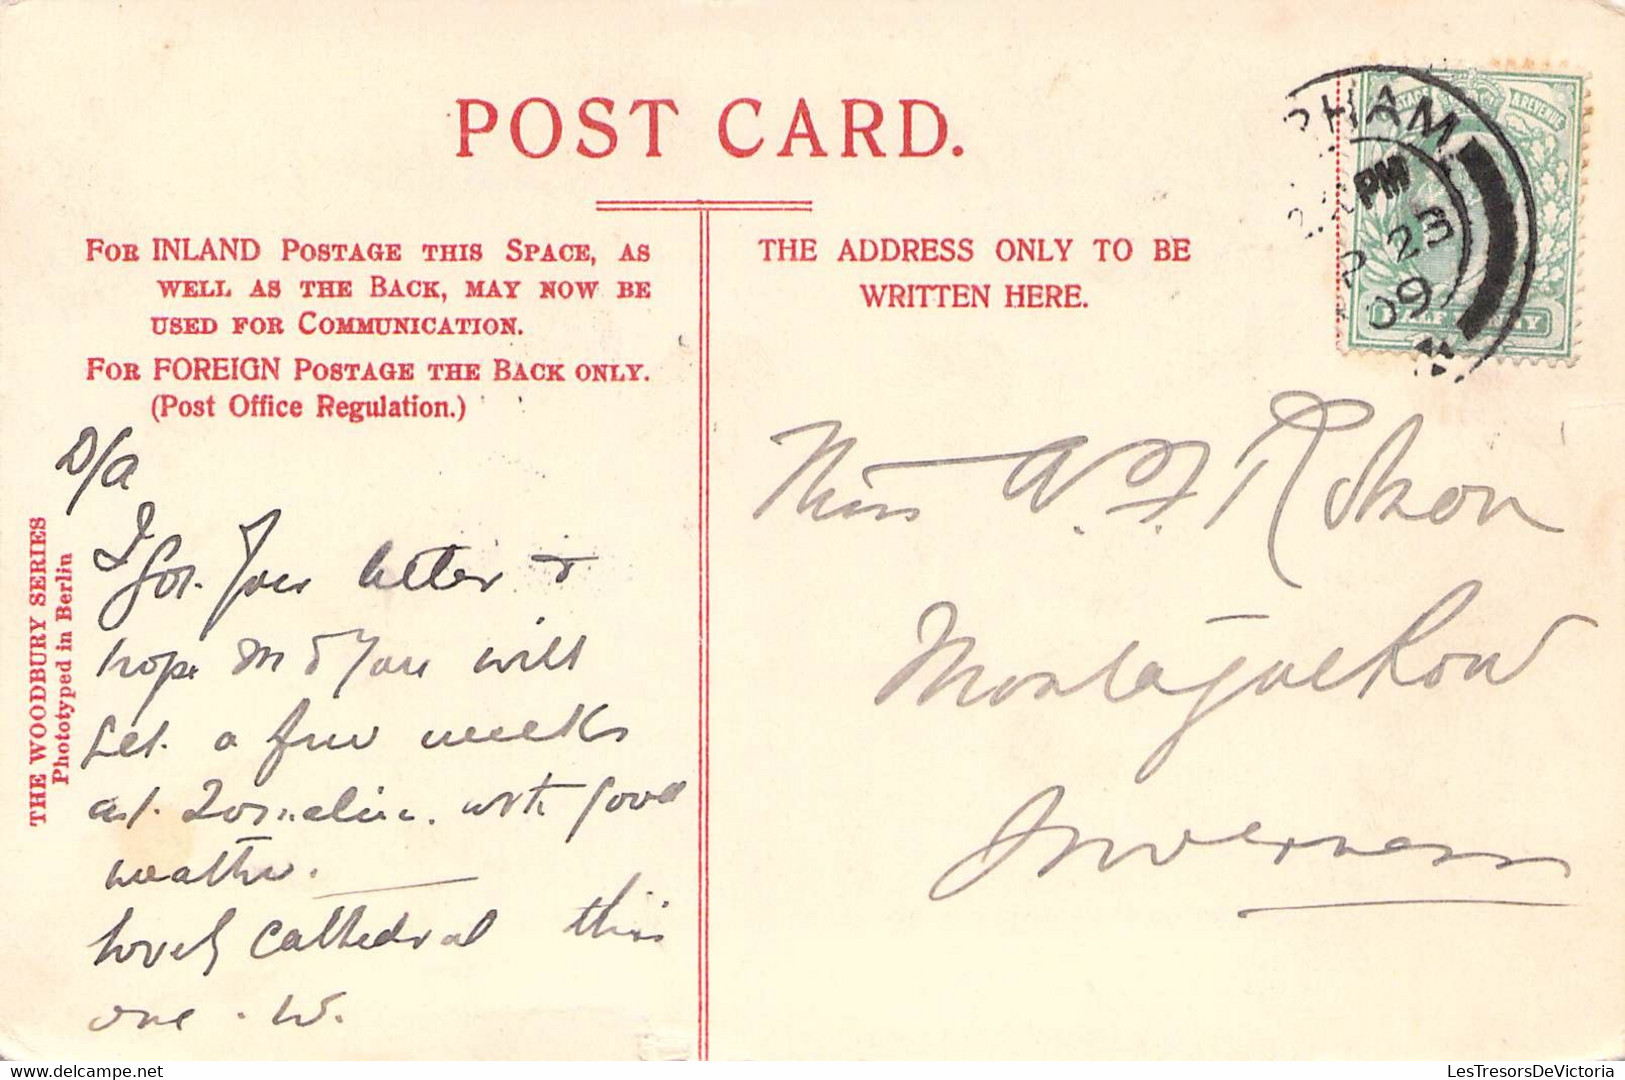 POST CARD.
FOR INLAND POSTAGE THIS SPACE, AS
WELL AS THE BACK, MAY NOW BE
USED FOR COMMUNICATION.
FOR FOREIGN POSTAGE THE BACK ONLY.
(Post Office Regulation.)
THE ADDRESS ONLY TO BE
WRITTEN HERE.
THE WOODBURY SERIES
Phototyped in Berlin
D/A
I got your letter &
hope M & you will
get a few weeks
at with good
weather.
Lovely cathedral this
one. W.
Miss A. F.
Montague Row
Inverness
PM
23
09
& REVENUE
LesTresorsDeVictoria